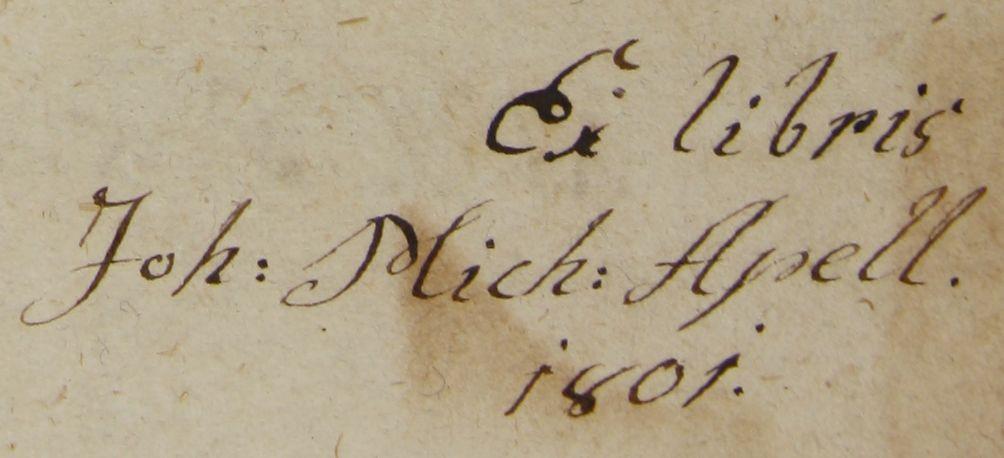 Ex libris
Joh: Mich: Apell.
1801.